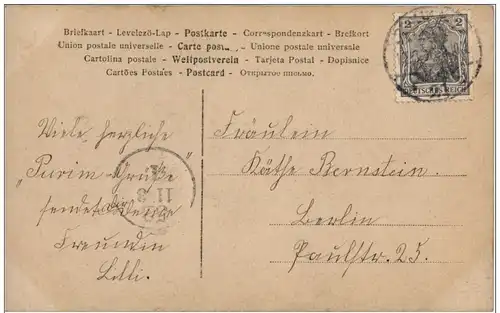 Briefkaart - Levelező-Lap - Postkarte - Correspondenzkart - Brefkort
Union postale universelle - Carte postale - Unione postale universale
Cartolina postale - Weltpostverein - Tarjeta Postal - Dopisnice
Cartões Postaes - Postcard - Открытое письмо.
2 2
DEUTSCHES REICH
Viele herzliche
"Purim-Grüße"
sendet dir deine
Freundin
Lilli.
Fräulein
Käthe Bernstein.
Berlin
Paulstr. 25.